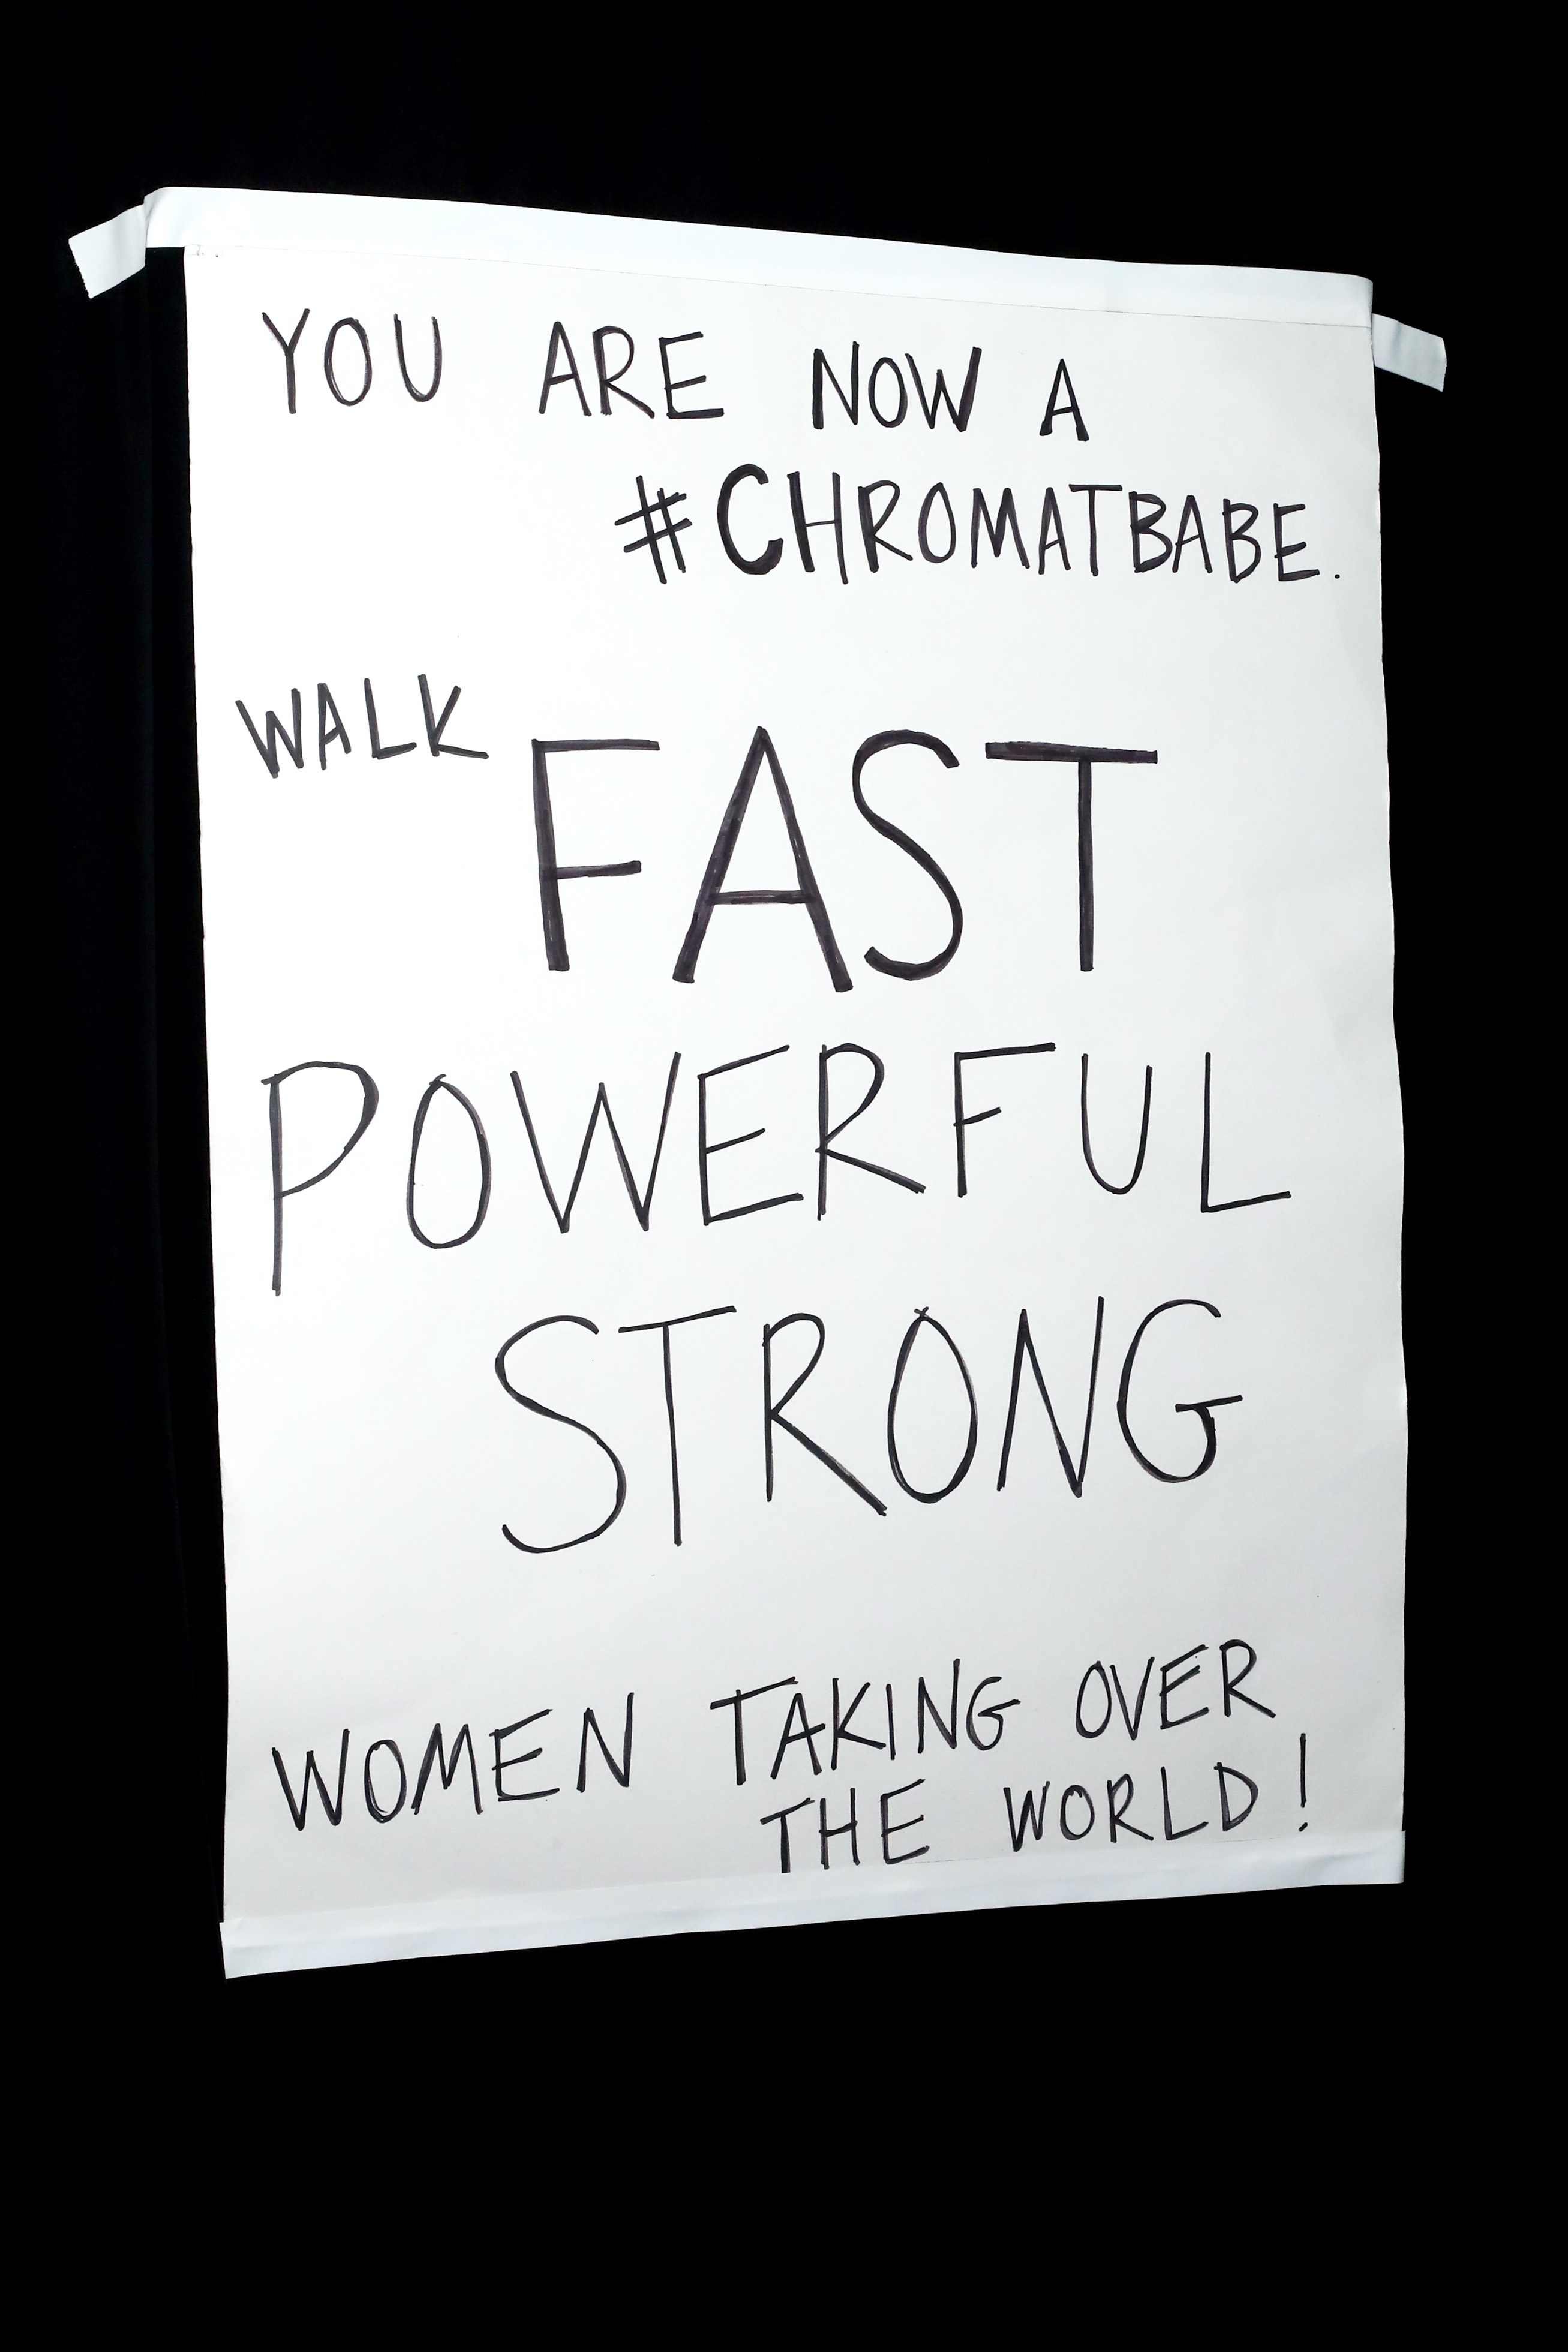 YOU ARE NOW A
#CHROMATBABE.
WALK FAST
POWERFUL
STRONG
WOMEN TAKING OVER
THE WORLD!